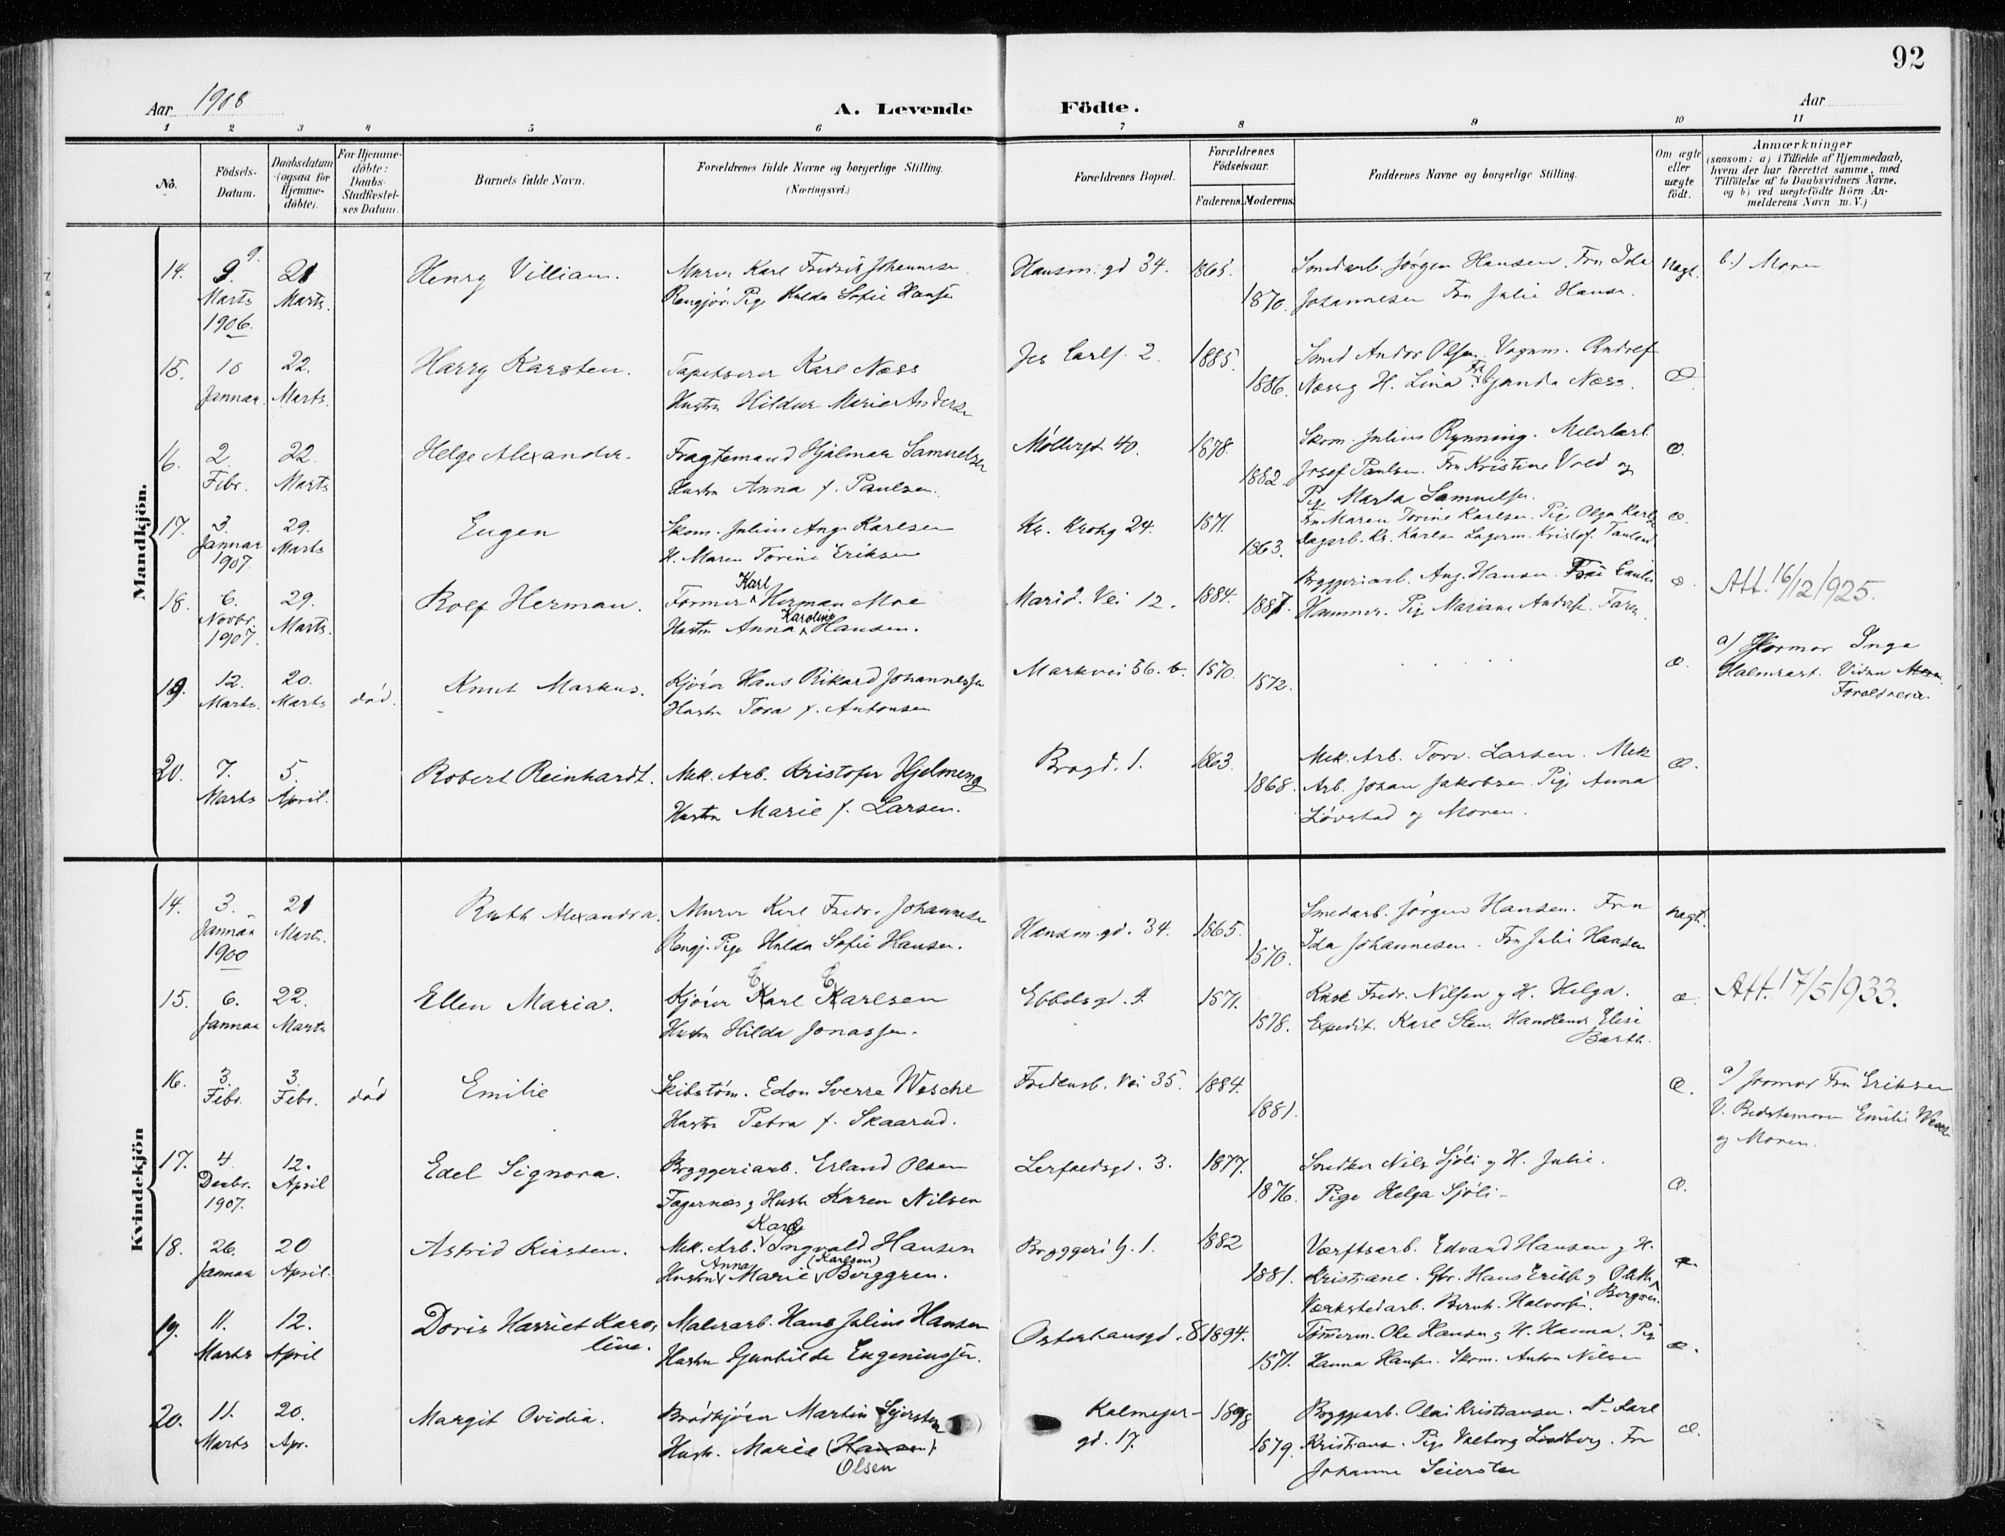 92
Aar 1908
A. Levende Födte.
Aar
1 2 3 4 5 6 7 8 9 10 11
No.
Födsels-
Datum.
Daabsdatum
(ogsaa for
Hjemme-
döbte).
For Hjemme-
döbte:
Daabs-
Stadfæstel-
ses Datum.
Barnets fulde Navn.
Forældrenes fulde Navne og borgerlige Stilling.
(Næringsvei.)
Forældrenes Bopæl.
Forældrenes
Födselsaar.
Faderens. Moderens.
Faddernes Navne og borgerlige Stilling.
Om ægte
eller
uægte
födt.
Anmærkninger
(saasom: a) i Tilfælde af Hjemmedaab,
hvem der har forrettet samme, med
Tilföielse af to Daabsvidners Navne,
og b) ved uægtefödte Börn An-
melderens Navn m. V.)
Mandkjön.
14. 9. 21 Henry Villiam. Murer Karl Fredrik Johannese Hausm. gd 34. 1865. Smedarb. Jørgen Hansen. Fru Ida Uægt. b.) Moren
Marts Marts. Rengjør. Pige Hulda Sofie Hansen 1870. Johannesen Fru Julie Hansen.
1906.
15. 10 22. Harry Karsten. Tapetserer Karl Næss 1885. Smed Andor Olsen.
Januar. Marts. Hustru Hildur Marie Anderse 1886. Næss g H. Lina Næss. Æ
16. 2. 22. Helge Alexander. Fragtemand Hjalmar Samuelsen Møllergt 40. 1878. Skom. Julius Rynning. æ.
Febr. Marts Hustru Anna f. Paulsen. 1882. Josef Paulsen. Fru Kristine Vold og
Pige Marta Samuelsen.
17. 3. 29. Eugen Skom. Julius Aug. Karlsen Kr. Krohg 24. 1871. Fru Maren Torine Karlsen. Pige Olga Karlse æ.
Januar Marts H. Maren Torine Eriksen 1863. Dagarb. Kr. Karlsen Lagerm. Kristof.
1907.
18. 6. 29. Rolf Herman. Former Karl Herman Moe Marid. Vei 12. 1884. Bryggeriarb. Aug. Hansen. æ. Att. 16/12/925.
Novbr. Marts. Hustru Anna Karoline Hansen. 1887. Hammer. Pige Mariane Anderse.
1907.
19. 12. 20. Knut Markus. Kjører Hans Rikard Johannessen Markvei 56. b. 1870. æ. a) Jormor Inga
Marts. Marts død. Hustru Tora f. Antonsen 1872. Halmrast. Vidner
Forældrene.
20. 7. 5. Robert Reinhardt. Mek. Arb. Kristofer Hjelmeng Brogd. 1. 1863. Mek. Arb. Torv. Larsen. Mek æ.
Marts April. Hustru Marie f. Larsen. 1868. Arb. Johan Jakobsen. Pige Anna
Løvstad og Moren.
Kvindekjön
14. 3. 21 Ruth Alexandra. Murer Karl Fredr. Johannese Hausm. gd. 34. 1865. Smedarb. Jørgen Hansen. Fru uægt.
Januar Marts. Rengj. Pige Hulda Sofie Hansen. 1870. Ida Johannesen. Fru Julie Hansen
1900
15. 6. 22. Ellen Maria. Kjører Karl Karlsen Ebbelsgd. 1871. Fredr. Nilsen g H. Helga. æ. Att. 17/5/933.
Januar Marts Hustru Hilda Jonassen. 1878. Expedit. Karl Sten. Elise
Barth.
16. 3. 3. Emilie Edon Sverre Wesche Fredensb. Vei 35. 1884. Æ. a) Jormor Fru Eriksen
Febr. Febr. død Hustru Petra f. Skaarud. 1881. V. Bedstemoren Emilie
og Moren.
17. 4 12. Edel Signora. Bryggeriarb. Erland Olsen 3. 1877. Snedker Nils Sjøli g H. Julie.
Decbr. April Fagernæs g Hustr Karen Nilsen 1876. Pige Helga Sjøli Æ.
1907.
18. 26. 20 Astrid Kirsten. Mek. Arb. Karl Ingvald Hansen Bryggeri g. 1. 1882 Værftsarb. Edvard Hansen g H. æ.
Januar April. Hustru Anna Marie (Karlsen) Berggren. 1881. Kristiane.
Værkstedarb. Bernh. Halvorsen.
19. 11. 12. Doris Harriet Karo- Malerarb. Hans Julius Hansen Osterhausgd. 8 1894. Tømmerm. Ole Hansen g H. Hanna. Pige æ.
Marts April line. Hustru Gunhilde Eugeniussen. 1871. Hanna Hansen. Skom. Anton Nilsen
20. 11. 20. Margit Ovidia. Brødkjører Martin Sejersten Kalmeyer- Bryggarb. Olai Kristiansen. Karl
Marts Apr. Hustr. Marie (Hansen) gd. 17. 1879. Kristians. Pige Valborg Lindberg. Fru Æ.
Olsen Johanna Seiersten